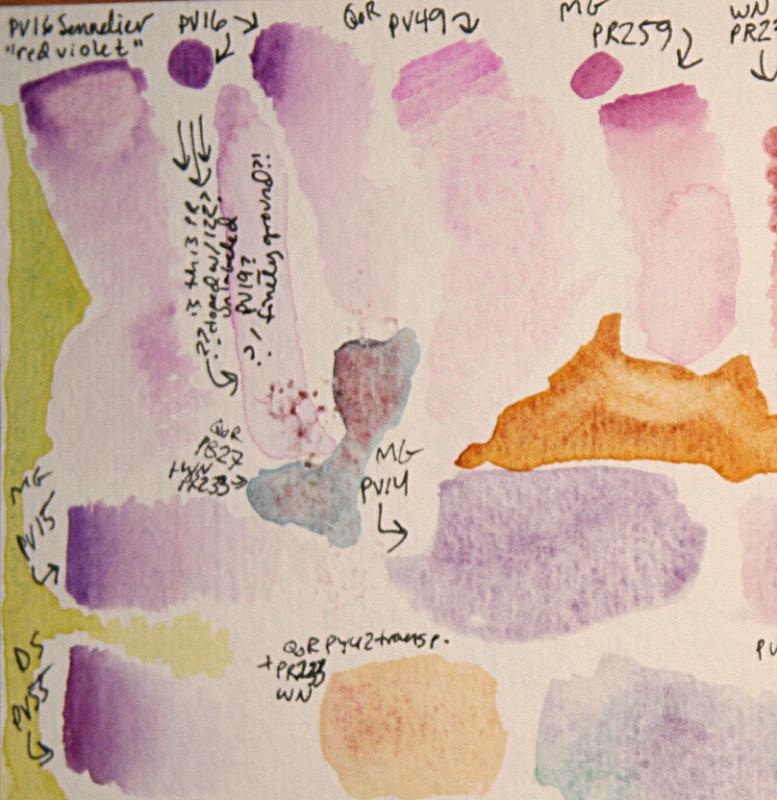 PV16 Sennelier
"red violet"
PV16
QoR PV49
MG
PR259
WN
PR23
?? is this PR
doped w/122?
unlabeled
PV19?
finely ground?!
QoR
PB27
+WN
PR233
MG
PV14
MG
PV15
DS
PV55
QoR PY42 transp.
+ PR233
WN
PV